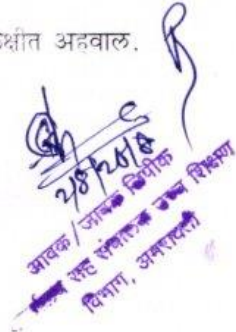 क्षीत अहवाल.
आवक / जावक लिपीक
सह संचालक उच्च शिक्षण
विभाग, अमरावती